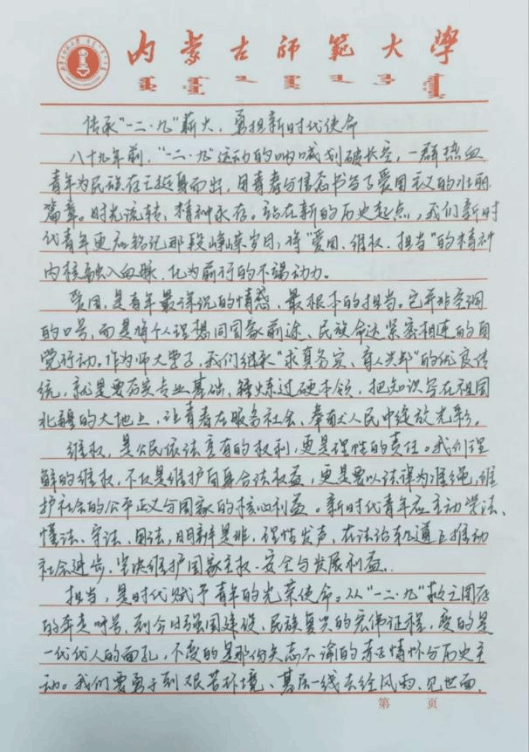 内蒙古师范大学
传承"一二·九"薪火，勇担新时代使命
八十九年前，"一二·九"运动的呐喊划破长空，一群热血
青年为民族存亡挺身而出，用青春与信念书写了爱国主义的壮丽
篇章。时光流转，精神永存，站在新的历史起点，我们新时
代青年更应铭记那段峥嵘岁月，将"爱国、维权、担当"的精神
内核融入血脉，化为前行的不竭动力。
爱国，是青年最深沉的情感，最根本的担当。它并非空洞
的口号，而是将个人理想同国家前途、民族命运紧密相连的自
觉行动。作为师大学子，我们继承"求真务实、育人兴邦"的优良传
统，就是要夯实专业基础、锤炼过硬本领，把知识写在祖国
北疆的大地上，让青春在服务社会、奉献人民中绽放光彩。
维权，是公民依法享有的权利，更是理性的责任。我们理
解的维权，不仅是维护自身合法权益，更是要以法律为准绳，维
护社会的公平正义与国家的核心利益。新时代青年应主动学法、
懂法、守法、用法，明辨是非，理性发声，在法治轨道上推动
社会进步，坚决维护国家主权、安全与发展利益。
担当，是时代赋予青年的光荣使命。从"一二·九"救亡图存
的奔走呼号，到今日强国建设、民族复兴的宏伟征程，变的是
一代代人的面孔，不变的是那份矢志不渝的赤子情怀与历史主
动。我们要勇于到艰苦环境、基层一线去经风雨、见世面，
第 页